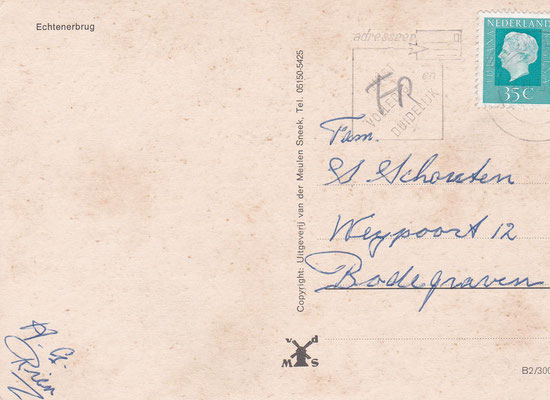 Echtenerbrug
adresseer
en
VOLLEDIG
DUIDELIJK
NEDERLAND
35C
Copyright: Uitgeverij van der Meulen Sneek, Tel. 05150-5425
Fam.
S Schouten
Weypoort 12
Bodegraven
v d
M S
A. G.
Rien
B2/300